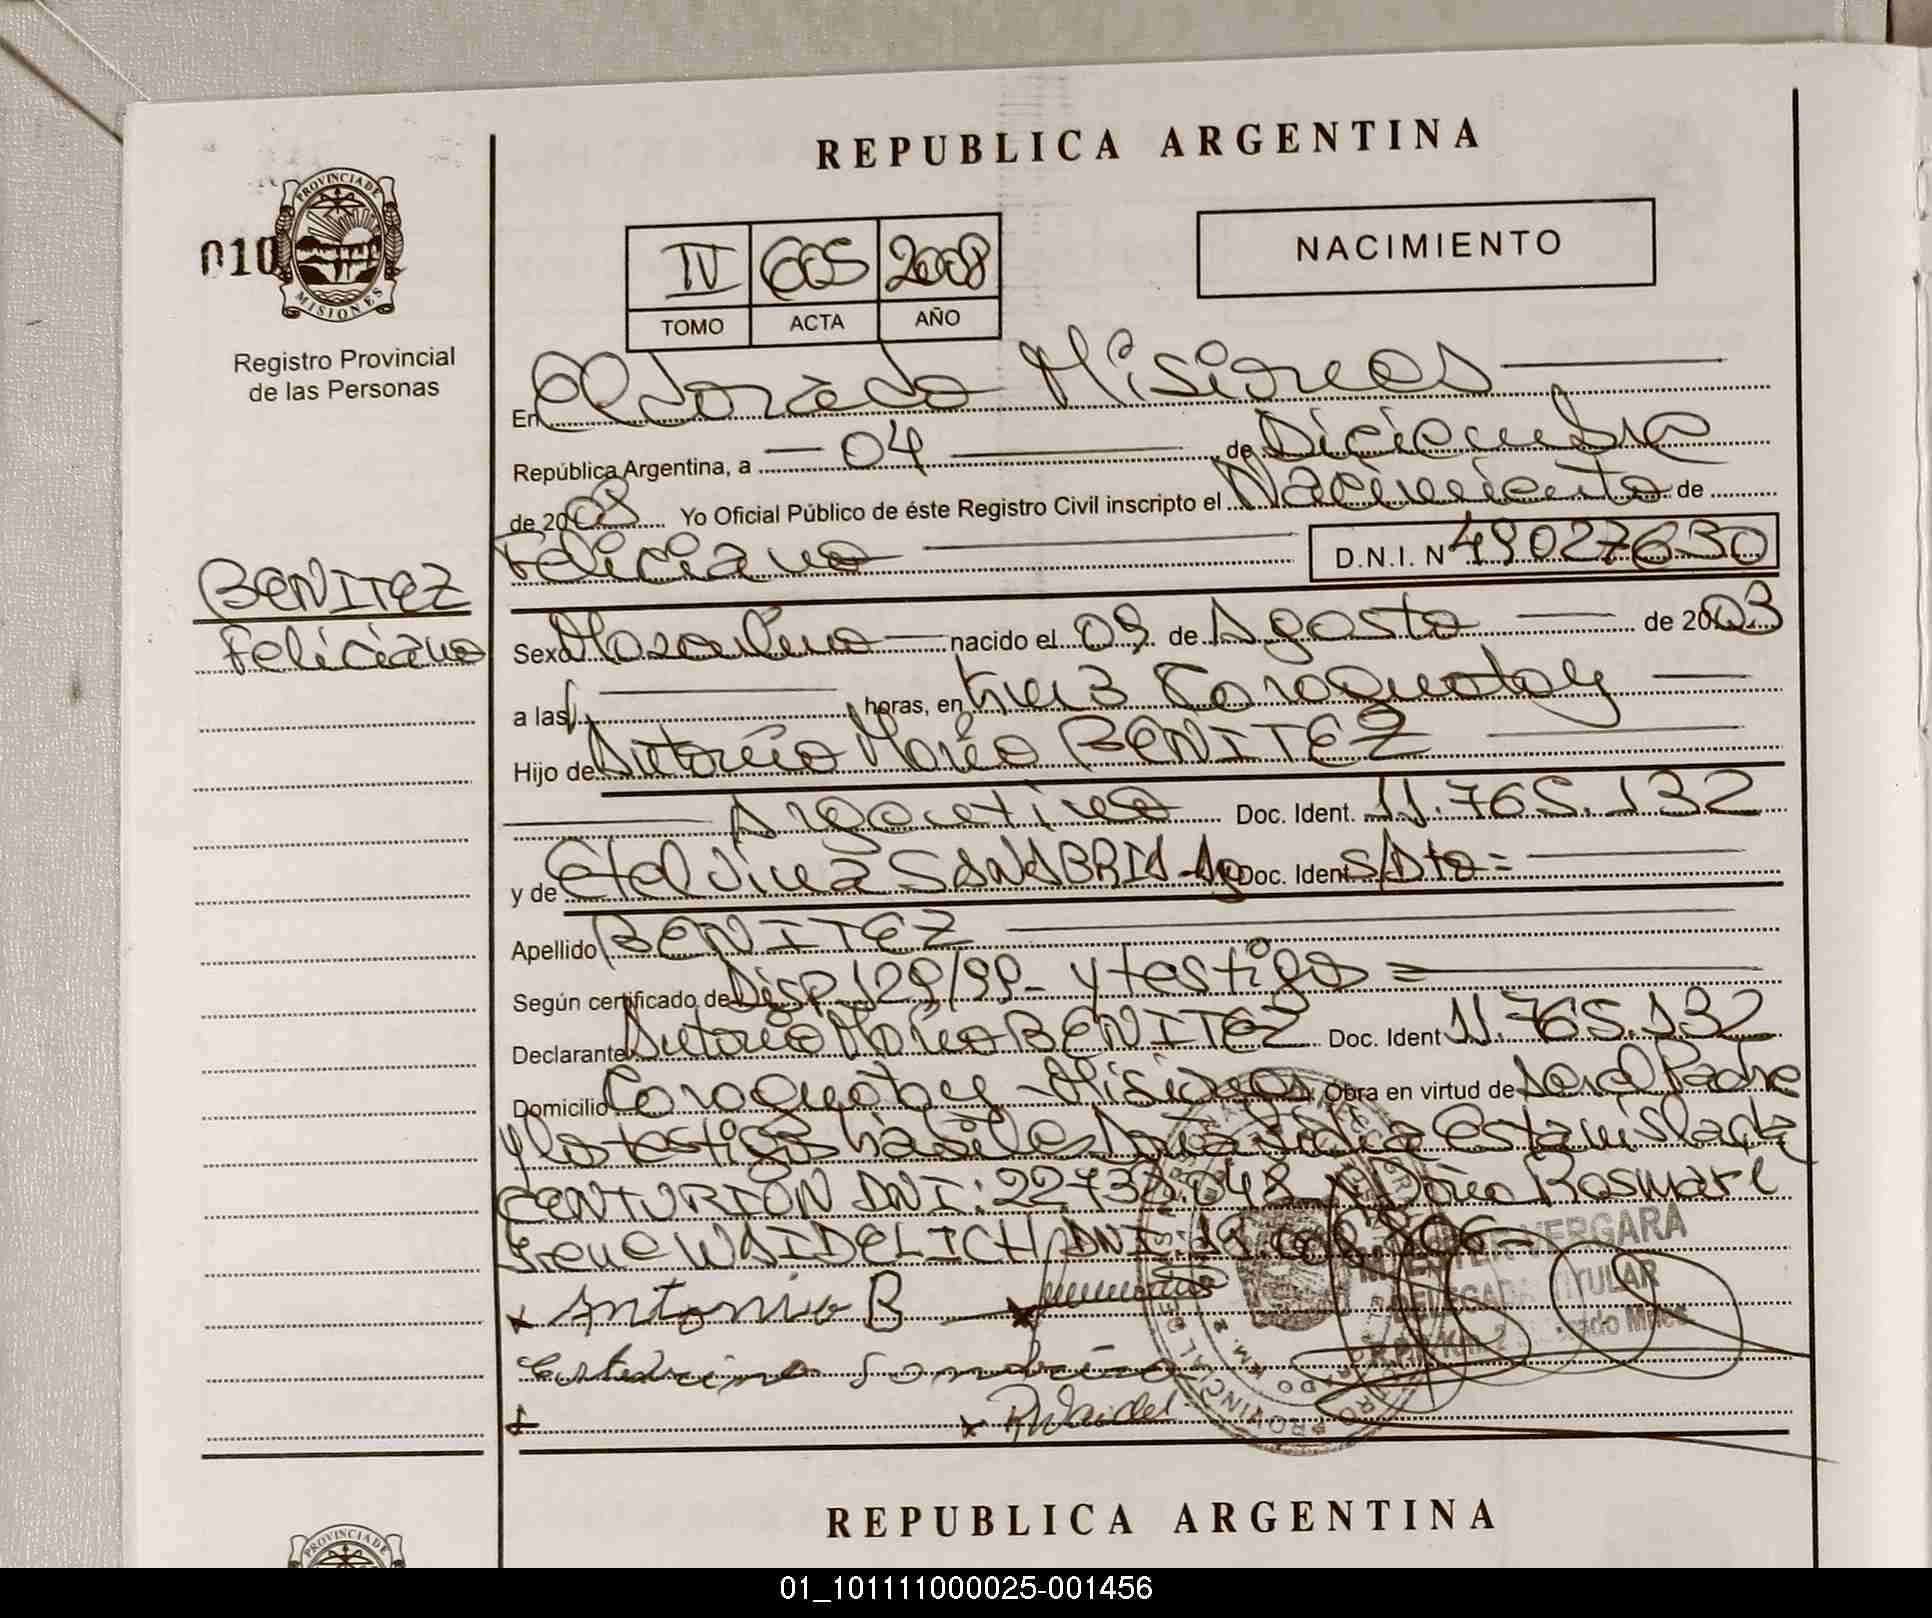 REPUBLICA ARGENTINA
010
PROVINCIA DE
MISIONES
Registro Provincial
de las Personas
IV 605 2008
TOMO ACTA AÑO
NACIMIENTO
En Eldorado Misiones
República Argentina, a — 04 — de Diciembre
de 2008 Yo Oficial Público de éste Registro Civil inscripto el Nacimiento de
Feliciano D.N.I. N 49027630
BENITEZ
Feliciano
Sexo Masculino nacido el 09 de Agosto de 2003
a las horas, en Caraguatay
Hijo de Antonio Mario BENITEZ
Argentino Doc. Ident. 11.765.132
y de Etelvina SANABRIA Doc. Ident S/Dto=
Apellido BENITEZ
Según certificado de Disp 129/99- y testigos =
Declarante Antonio Mario BENITEZ Doc. Ident 11.765.132
Domicilio Caraguatay - Misiones Obra en virtud de ser el Padre
y los testigos habiles Doña Lidia Estanislada
CENTURION DNI: y Doña Rosmari
Irene WAIDELICH DNI:
VERGARA
DELEGADA TITULAR
x Antonio B x
x x R Waidel
REPUBLICA ARGENTINA
PROVINCIA DE
01_101111000025-001456